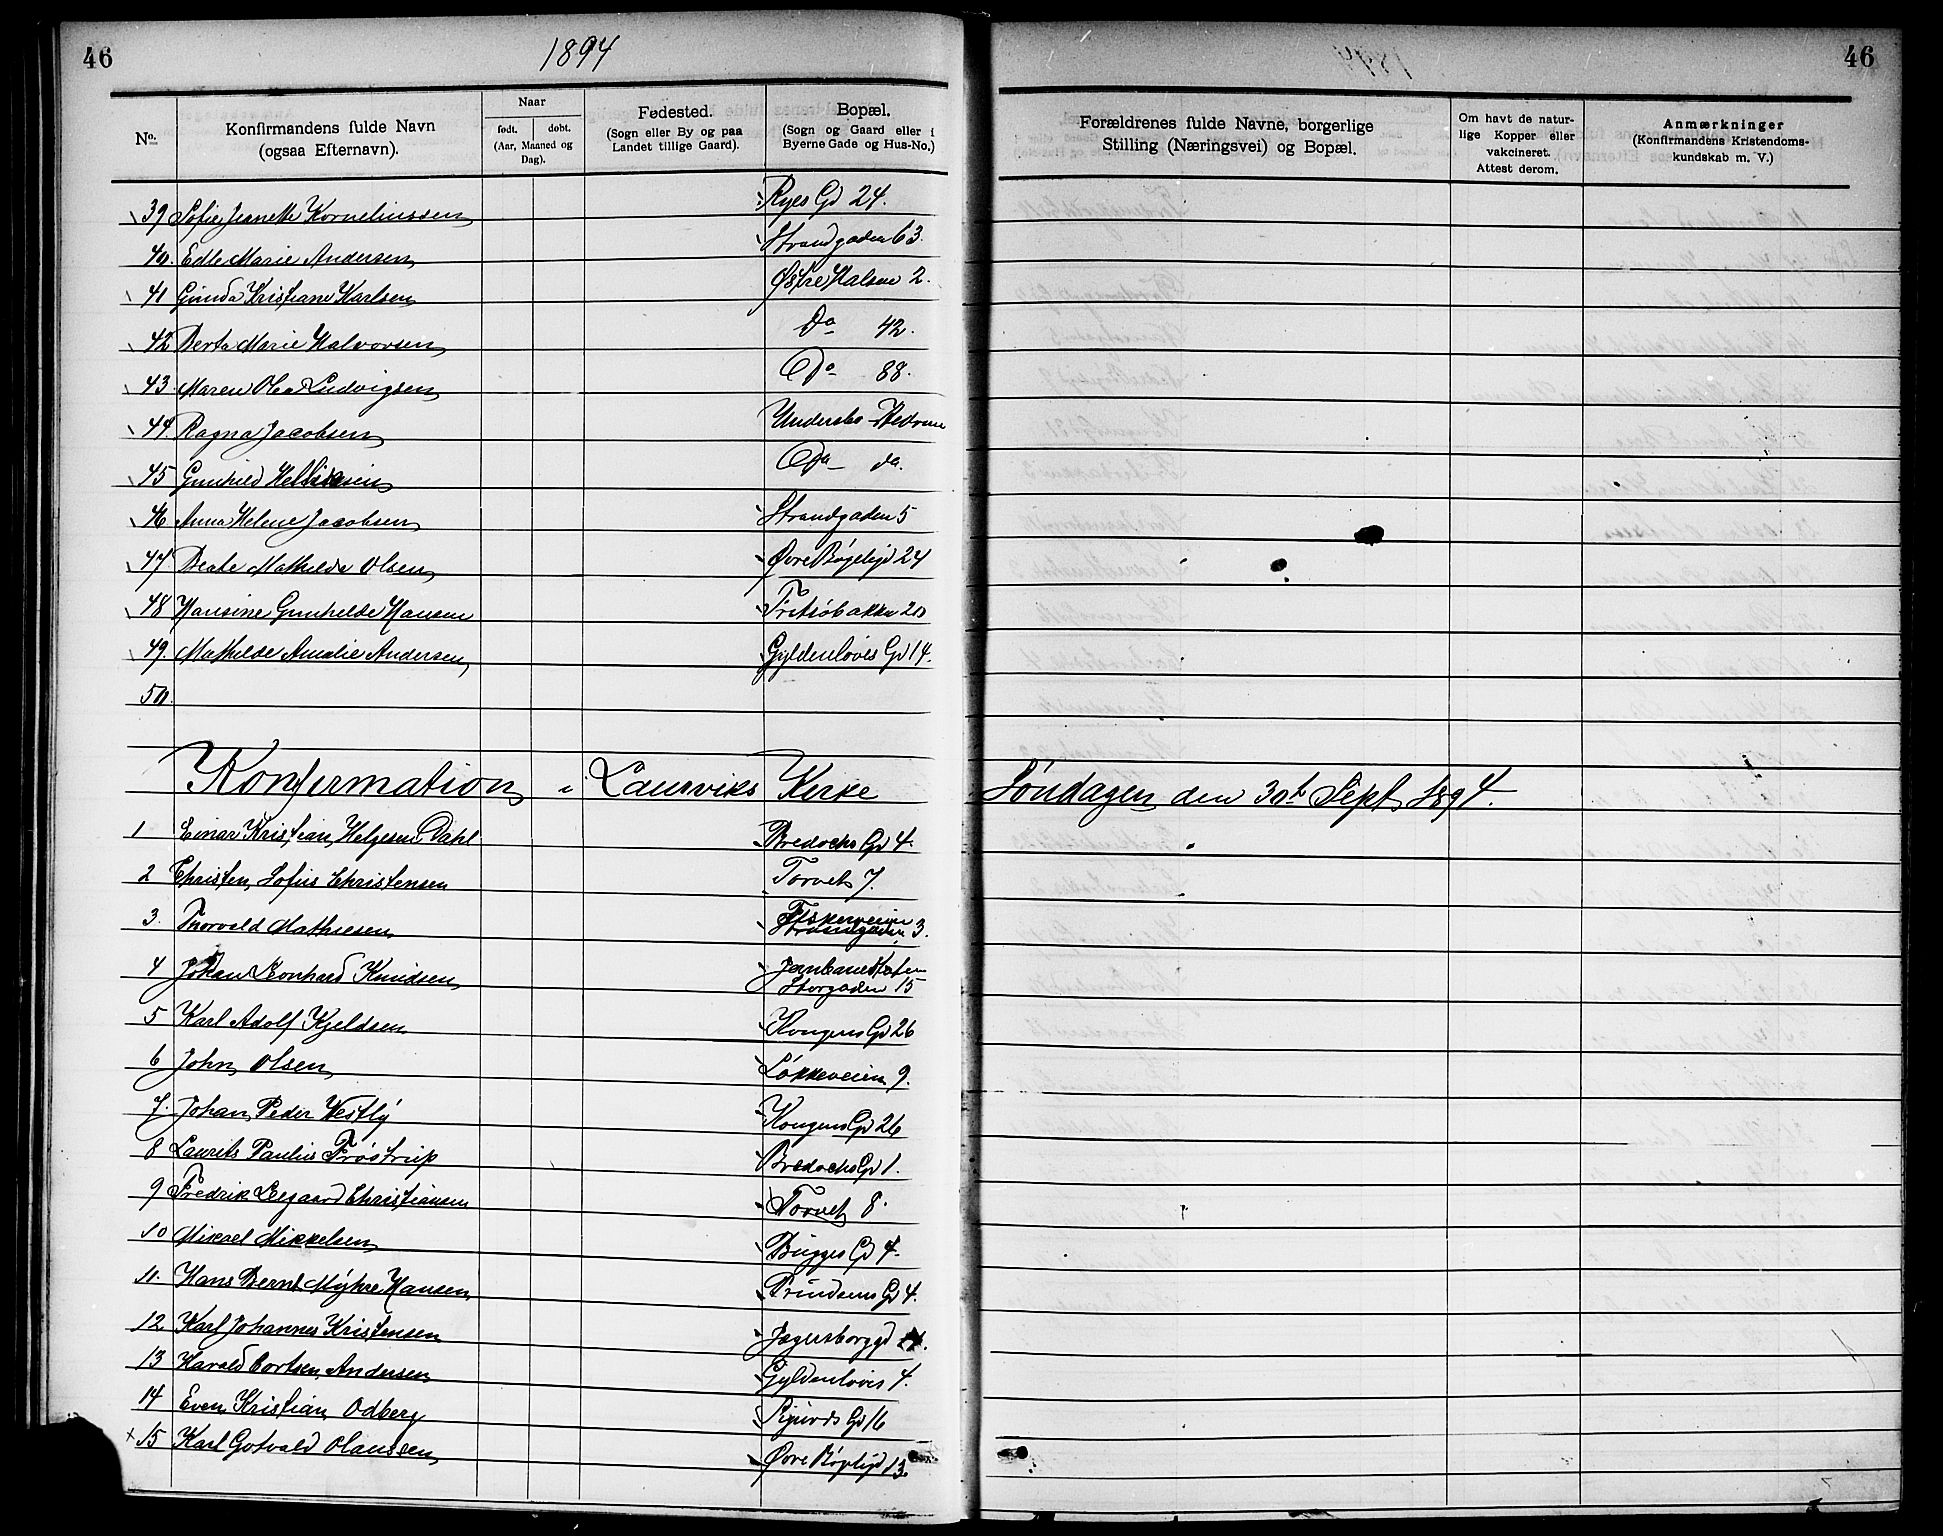 46
1894
46
No.
Konfirmandens fulde Navn
(ogsaa Efternavn).
Naar
født. døbt.
(Aar, Maaned og
Dag).
Fødested.
(Sogn eller By og paa
Landet tillige Gaard).
Bopæl.
(Sogn og Gaard eller i
Byerne Gade og Hus-No.)
Forældrenes fulde Navne, borgerlige
Stilling (Næringsvei) og Bopæl.
Om havt de natur-
lige Kopper eller
vakcineret.
Attest derom.
Anmærkninger
(Konfirmandens Kristendoms-
kundskab m. V.)
39 Sofie Jeanette Korneliussen Ryes Gd 24.
40. Edle Marie Andersen Strandgaden 63.
41 Gunda Kristiane Karlsen Østre Halsen 2.
42 Berta Marie Halvorsen Do 42.
43. Maren Olea Ludvigsen Do 88.
44. Ragna Jacobsen Undersbo Hedrum
45 Gunhild Do do.
46 Anna Helene Jacobsen Strandgaden 5
47 Beate Mathilde Olsen Øvre Bøgeligd 24
48 Hansine Gunhilde Hansen Fritzøbakke 20
49. Mathilde Amalie Andersen Gyldenløves Gd 14.
50.
Konfirmation i Laurviks Kirke Søndagen den 30t Sept 1894.
1 Einar Kristian Helgesen Dahl Bredochs Gd 4.
2 Christen Sofus Christensen Torvet 7.
3. Thorvald Mathiesen Fiskerveien
Strandgaden 3.
4 Johan Leonhard Knudsen
Storgaden 15
5 Karl Adolf Kjeldsen Kongens Gd 26
6 John Olsen Løkkeveien 9.
7. Johan Peder Vestly Kongens Gd 26
8 Laurits Paulius Frøstrup Bredochs Gd 1.
9 Fredrik Leegaard Christiansen Torvet 8.
10 Mikael Mikkelsen Bugges Gd 4.
11. Hans Bernt Myhre Hansen Prindsens Gd 4.
12 Karl Johannes Kristensen Jegersborggd
13 Harald Cortsen Andersen Gyldenløves 4.
14 Even Kristian Odberg Gd 16
+ 15 Karl Gotvald Olaussen Øvre Bøgeligd 13.